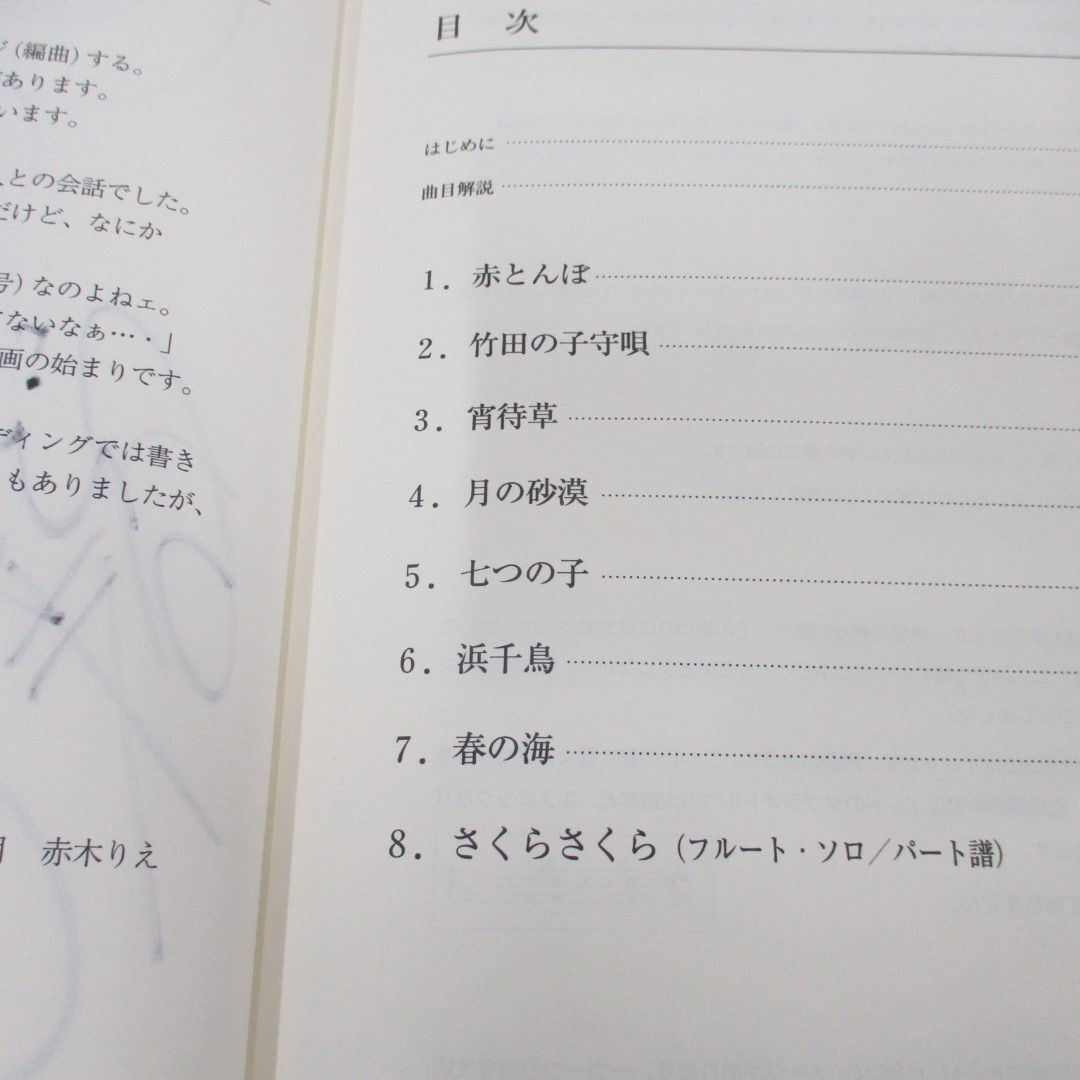 （編曲）する。
あります。
います。
との会話でした。
だけど、なにか
号）なのよねェ。
ないなぁ…．」
画の始まりです。
ディングでは書き
もありましたが、
月　赤木りえ
目　次
はじめに
曲目解説
1．赤とんぼ
2．竹田の子守唄
3．宵待草
4．月の砂漠
5．七つの子
6．浜千鳥
7．春の海
8．さくらさくら（フルート・ソロ／パート譜）